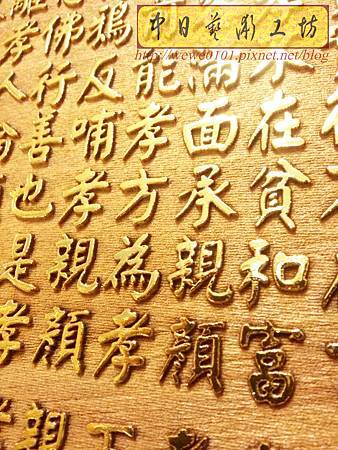 中日藝彫工坊
http://wewe0101.pixnet.net/blog
不在貧和富
滿面承親顏孝
能孝方為孝下
鴉反哺孝親顏親
佛行善也是孝